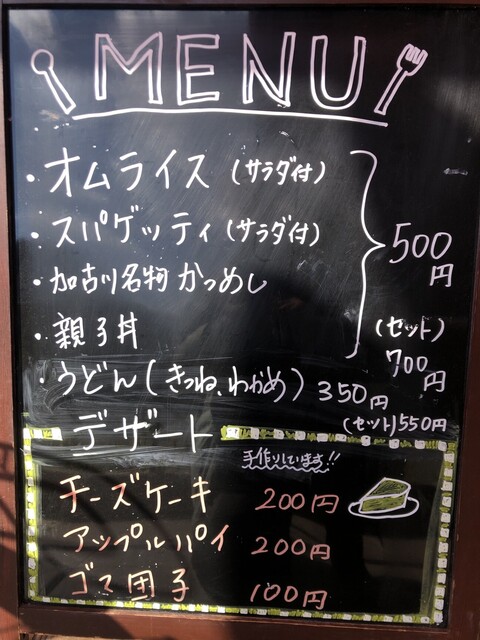 MENU
・オムライス (サラダ付)
・スパゲッティ (サラダ付)
・加古川名物 かつめし
・親子丼
500円
(セット)
700円
・うどん (きつね、わかめ) 350円
(セット) 550円
デザート
手作りしています!!
チーズケーキ 200円
アップルパイ 200円
ゴマ団子 100円